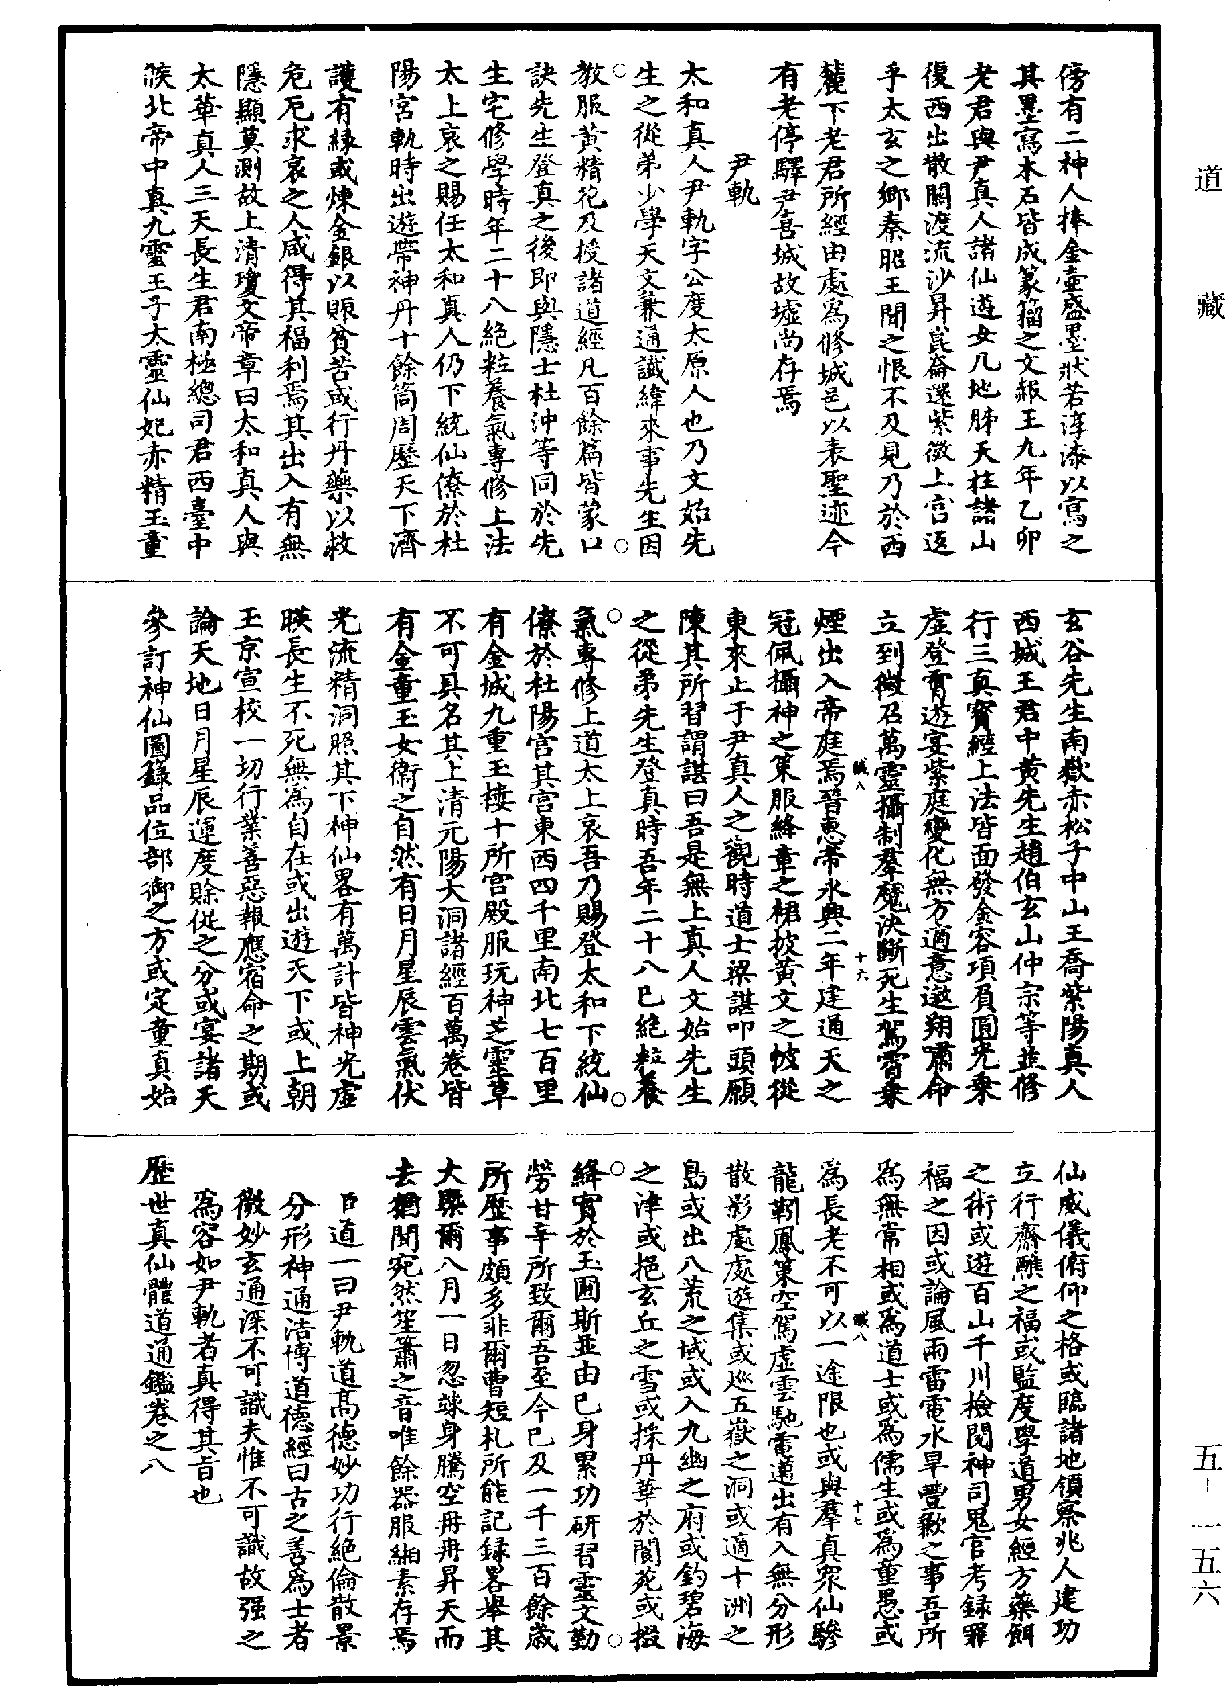 道藏
傍有二神人捧金壺盛墨狀若淳漆以寫之
其墨寫本石皆成篆籀之文赧王九年乙卯
老君與尹真人諸仙遊女几地肺天柱諸山
復西出散關渡流沙昇崑崙還紫微上宮返
乎太玄之鄉秦昭王聞之恨不及見乃於西
麓下老君所經由處為修城邑以表聖迹今
有老停驛尹喜城故墟尚存焉
尹軌
太和真人尹軌字公度太原人也乃文始先
生之從弟少學天文兼通讖緯來事先生因
教服黃精花及授諸道經凡百餘篇皆蒙口
訣先生登真之後即與隱士杜沖等同於先
生宅修學時年二十八絕粒養氣專修上法
太上哀之賜任太和真人仍下統仙僚於杜
陽宮軌時出遊帶神丹十餘筒周歷天下濟
護有緣或煉金銀以賑貧苦或行丹藥以救
危厄求哀之人咸得其福利焉其出入有無
隱顯莫測故上清瓊文帝章曰太和真人與
太華真人三天長生君南極總司君西臺中
候北帝中真九靈王子太靈仙妃赤精玉童
玄谷先生南嶽赤松子中山王喬紫陽真人
西城王君中黃先生趙伯玄山仲宗等並修
行三真寶經上法皆面發金容項負圓光乘
虛登霄遊宴紫庭變化無方適意遨翔嘯命
立到徵召萬靈攝制羣魔決斷死生駕霄乘
煙出入帝庭焉晉惠帝永興二年建通天之
冠佩攝神之策服絳章之裙披黃文之帔從
東來止于尹真人之觀時道士梁諶叩頭願
陳其所習謂諶曰吾是無上真人文始先生
之從弟先生登真時吾年二十八已絕粒養
氣專修上道太上哀吾乃賜登太和下統仙
僚於杜陽宮其宮東西四千里南北七百里
有金城九重玉樓十所宮殿服玩神芝靈草
不可具名其上清元陽大洞諸經百萬卷皆
有金童玉女衛之自然有日月星辰雲氣伏
光流精洞照其下神仙畧有萬計皆神光虛
暎長生不死無為自在或出遊天下或上朝
玉京宣校一切行業善惡報應宿命之期或
論天地日月星辰運度賒促之分或宴諸天
參訂神仙圖籙品位部御之方或定童真始
仙威儀俯仰之格或臨諸地領察兆人建功
立行齋醮之福或監度學道男女經方藥餌
之術或遊百山千川檢閱神司鬼官考録罪
福之因或論風雨雷電水旱豐歉之事吾所
為無常相或為道士或為儒生或為童愚或
為長老不可以一途限也或與羣真眾仙驂
龍靷鳳策空駕虛雲馳電邁出有入無分形
散影處處遊集或巡五嶽之洞或適十洲之
島或出八荒之域或入九幽之府或釣碧海
之津或挹玄丘之雪或採丹華於閬苑或掇
絳實於玉圃斯並由己身累功研習靈文勤
勞甘辛所致爾吾至今已及一千三百餘歲
所歷事頗多非爾曹短札所能記録畧舉其
大槩爾八月一日忽竦身騰空冉冉昇天而
去猶聞宛然笙簫之音唯餘器服緗素存焉
臣道一曰尹軌道高德妙功行絕倫散景
分形神通浩博道德經曰古之善為士者
微妙玄通深不可識夫惟不可識故强之
為容如尹軌者真得其旨也
歷世真仙體道通鑑卷之八
五-一五六